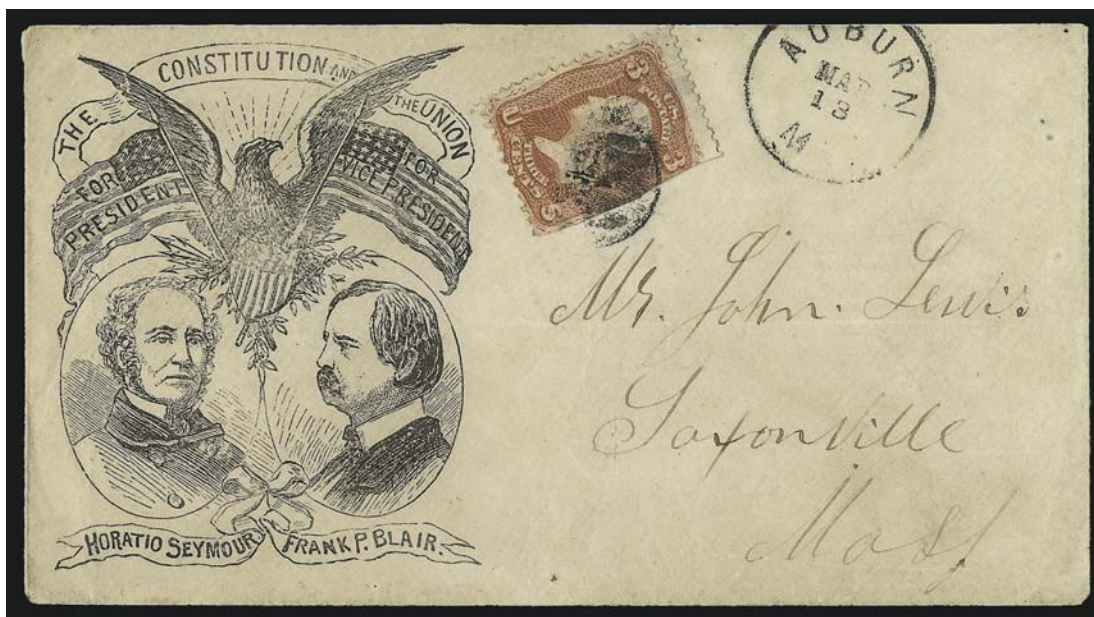 THE CONSTITUTION AND THE UNION
FOR PRESIDENT
FOR VICE PRESIDENT
HORATIO SEYMOUR.
FRANK P. BLAIR.
3 U.S. POSTAGE 3
U THREE CENTS S
AUBURN
MAR
13
M
Mr. John. Lewis
Saxonville
Mass